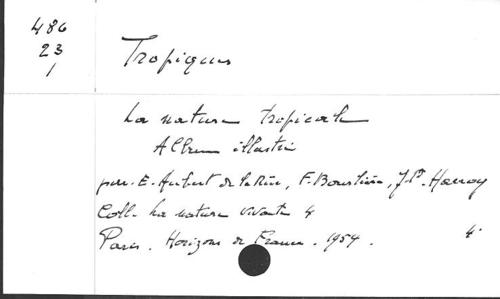 486
23
1
Tropiques
La nature tropicale
Album illustré
par. E. Aubert de la Rüe, F. Bourlière, J.P. Harroy
Coll. La nature vivante 4
Paris. Horizons de France. 1954. 4°